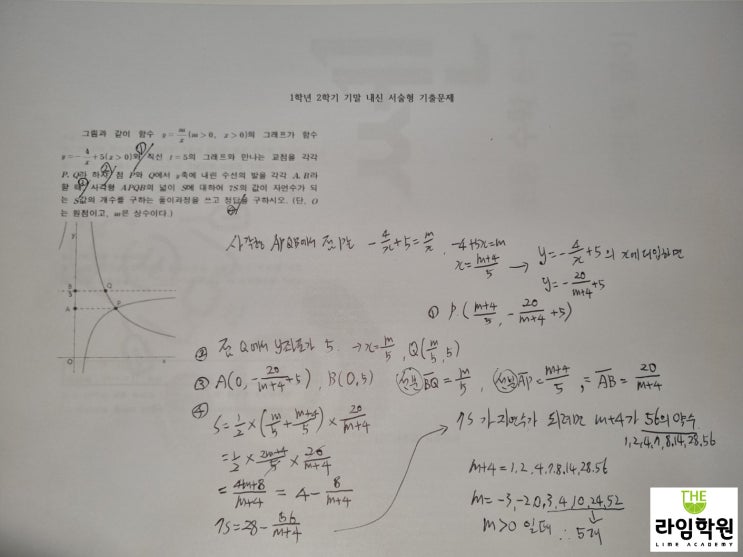 1학년 2학기 기말 내신 서술형 기출문제
그림과 같이 함수 y = m/x (m > 0, x > 0)의 그래프가 함수
y = -4/x + 5(x > 0)와 직선 t = 5의 그래프와 만나는 교점을 각각 ①
P, Q라 하자. 점 P와 Q에서 y축에 내린 수선의 발을 각각 A, B라 ②
할 때 사각형 APQB의 넓이 S에 대하여 7S의 값이 자연수가 되 ③
는 S값의 개수를 구하는 풀이과정을 쓰고 정답을 구하시오. (단, O
는 원점이고, m은 상수이다.) ④
y
B
5
Q
A
P
O
x
사각형 APQB에서 점 P는 -4/x + 5 = m/x, -4+5x=m
x = (m+4)/5 → y = -4/x + 5 의 x에 대입하면
y = -20/(m+4) + 5
① P. ((m+4)/5, -20/(m+4) + 5)
② 점 Q에서 y좌표가 5. → x = m/5, Q(m/5, 5)
③ A(0, -20/(m+4) + 5), B(0, 5) 선분 BQ = m/5, 선분 AP = (m+4)/5, = AB = 20/(m+4)
④
S = 1/2 × (m/5 + (m+4)/5) × 20/(m+4)
= 1/2 × (2m+4)/5 × 20/(m+4)
= (4m+8)/(m+4) = 4 - 8/(m+4)
7S = 28 - 56/(m+4)
7S가 자연수가 되려면 m+4가 56의 약수
1, 2, 4, 7, 8, 14, 28, 56
m+4 = 1, 2, 4, 7, 8, 14, 28, 56
m = -3, -2, 0, 3, 4, 10, 24, 52
m > 0 일때 ∴ 5개
THE
라임학원
LIME ACADEMY